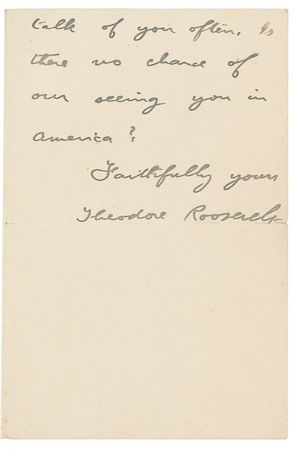 talk of you often. Is
there no chance of
our seeing you in
America?
Faithfully yours
Theodore Roosevelt